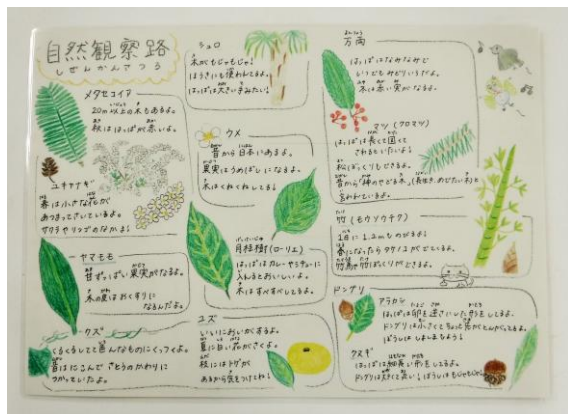 自然観察路
しぜんかんさつろ
メタセコイア
20m以上の木もあるよ。
秋ははっぱが赤いよ。
ユキヤナギ
春は小さな花が
あつまってさいているよ。
サクラやリンゴのなかま！
ヤマモモ
甘ずっぱい果実がなるよ。
木の皮はおくすりに
なるんだよ。
クズ
くるくるしてて色んなものにくっつくよ。
昔はにこんで さとうのかわりに
つかっていたよ。
シュロ
木がもじゃもじゃ！
ほうきにも使われてるよ。
はっぱは大きい手みたい！
ウメ
昔から日本にあるよ。
果実はうめぼしになるよ。
木はくねくねしてる
月桂樹(ローリエ)
はっぱはカレーやシチューに
入れるとおいしいよ。
木はすべすべしてるよ。
ユズ
いいにおいがするよ。
夏に白い花がさくよ。
枝にはトゲが
あるから気をつけてね！
万両
はっぱはなみなみで
いつでもみどりいろだよ。
冬は赤い実がなるよ。
マツ (クロマツ)
はっぱは長くて固くて
さわるといたいよ！
松ぼっくりもできるよ。
昔から「神のやどる木」(長生き、めでたい木)と
言われているよ。
竹 (モウソウチク)
1日に1.2mものびるよ！
春になったらタケノコがでてくるよ。
竹馬や竹ぽっくりができるよ。
ドングリ
アラカシ
はっぱは卵を逆さにした形をしてるよ。
ドングリは小さくてちょっと先がとんがってるよ。
ぼうしはしましまもよう！
クヌギ
はっぱは細長い形をしてるよ。
ドングリは大きくて丸い！ぼうしはもじゃもじゃ！